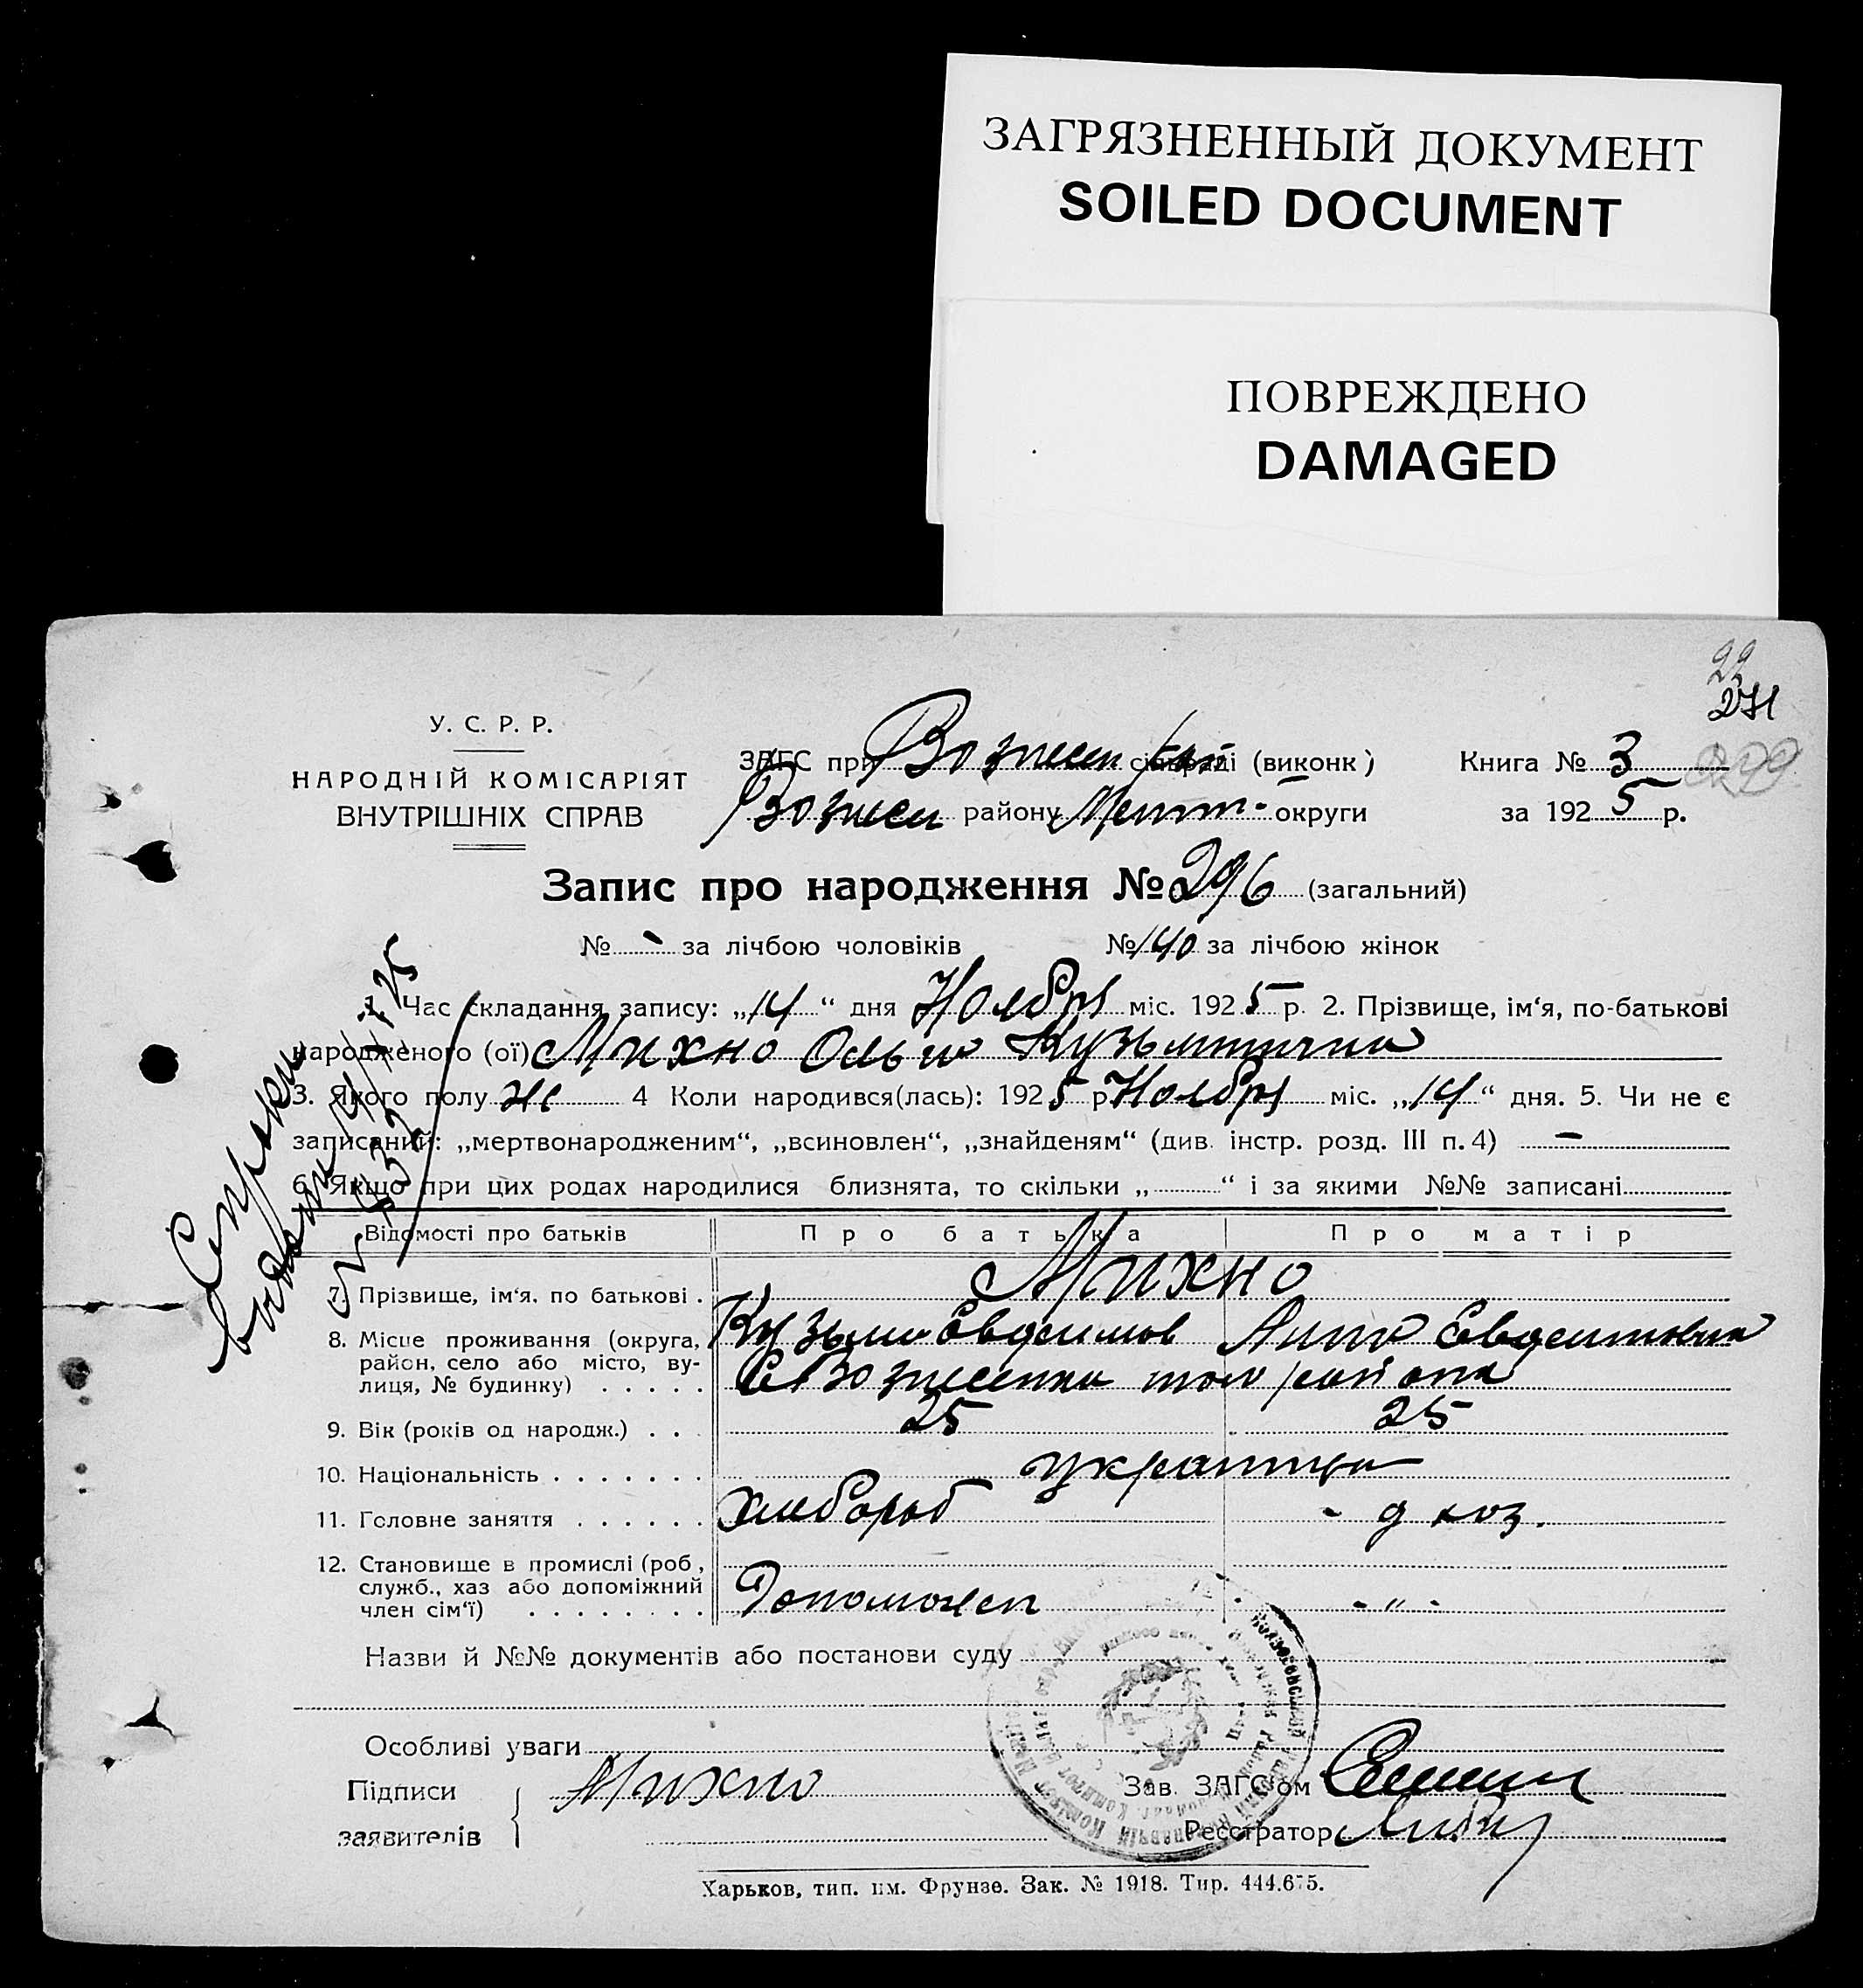 ЗАГРЯЗНЕННЫЙ ДОКУМЕНТ
SOILED DOCUMENT
ПОВРЕЖДЕНО
DAMAGED
22
271
279
У. С. Р. Р.
НАРОДНІЙ КОМІСАРІЯТ
ВНУТРІШНІХ СПРАВ
ЗАГС при Вознесен рай сільраді (виконк)
Книга № 3
Вознесен району Меліт округи
за 1925 р.
Запис про народження № 296 (загальний)
№ - за лічбою чоловіків № 140 за лічбою жінок
1. Час складання запису: „14“ дня Ноября міс. 1925 р. 2. Прізвище, ім‘я, по-батькові
народженого (ої) Михно Ольга Кузьминична
3. Якого полу ж 4 Коли народився(лась): 1925 р Ноября міс. „14“ дня. 5. Чи не є
записаний: „мертвонародженим“, „всиновлен“, „знайденям“ (див. інстр. розд. III п. 4) —
6. Якщо при цих родах народилися близнята, то скільки „ “ і за якими №№ записані
Справки
выдан 14/XI 25
№ 432
Відомості про батьків Про батька Про матір
7. Прізвище, ім‘я, по батькові . Михно
Кузьма Евдокимов Анна Евдокимовна
8. Місце проживання (округа,
район, село або місто, ву-
лиця, № будинку) . . . . . С Вознесенка того района
9. Вік (років од народж.) . . . 25 25
10. Національність . . . . . . . украинцы
11. Головне заняття . . . . . . хлебороб - д хоз.
12. Становище в промислі (роб,
служб., хаз або допоміжний
член сім‘ї) . . . . . . . . Допоможен - " -
Назви й №№ документів або постанови суду
Особливі уваги
Підписи Михно Зав. ЗАГС‘ом
заявителів Реєстратор
Харьков, тип. им. Фрунзе. Зак. № 1918. Тир. 444.675.